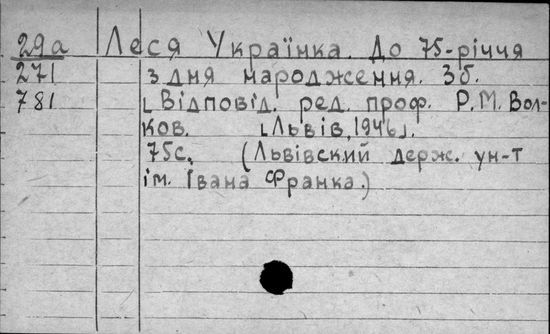 29а Леся Українка. До 75-річчя
271 з дня народження. Зб.
781 [Відповід. ред. проф. Р.М. Вол-
ков. [Львів, 1946].
75с. (Львівский держ. ун-т
ім. Івана Франка.)